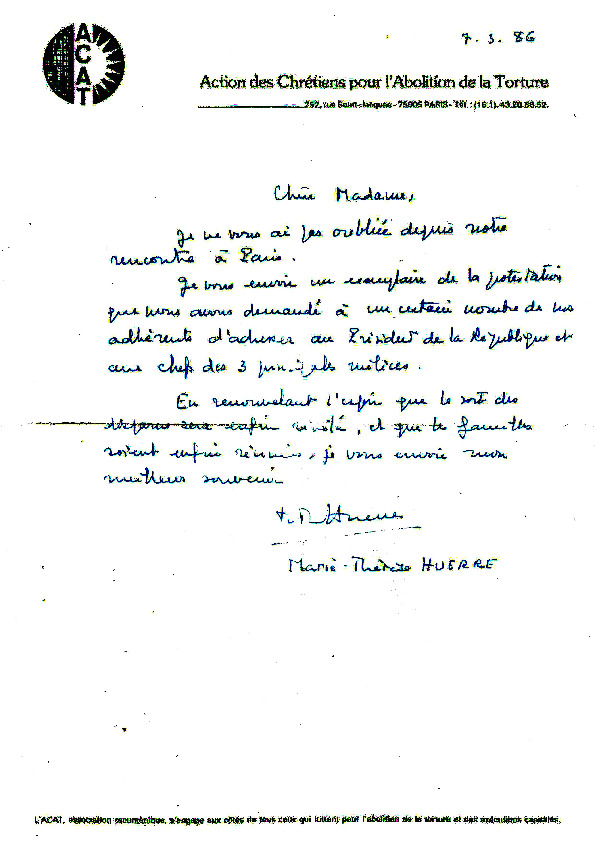 ACAT
7.3.86
Action des Chrétiens pour l'Abolition de la Torture
252, rue Saint-Jacques - 75005 PARIS - Tél. : (16.1).43.29.88.52.
Chère Madame,
Je ne vous ai pas oubliée depuis notre
rencontre à Paris.
Je vous envoie un exemplaire de la protestation
que nous avons demandé à un certain nombre de nos
adhérents d'adresser au Président de la République et
aux chefs des 3 principales milices.
En renouvelant l'espoir que le sort des
disparus sera enfin révélé, et que les familles
soient enfin réunies, je vous envoie mon
meilleur souvenir
Marie-Thérèse HUERRE
L'ACAT, association œcuménique, s'engage aux côtés de tous ceux qui luttent pour l'abolition de la torture et des exécutions capitales.